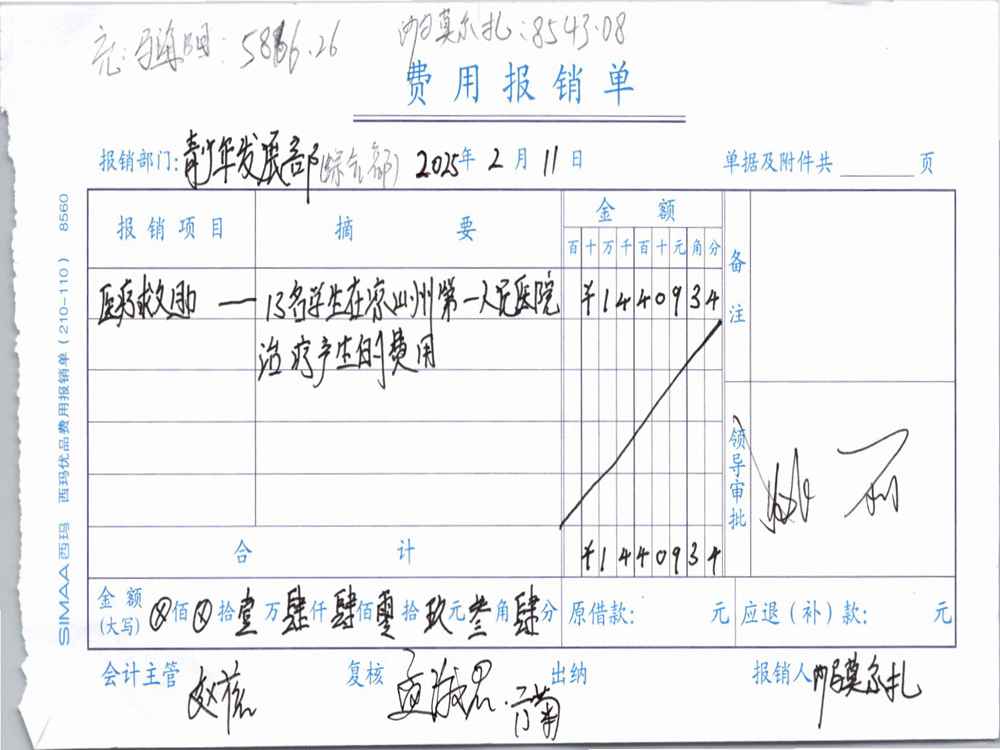 5866.26 莫尔扎:8543.08
费用报销单
报销部门:青少年发展部(综合部) 2025年2月11日 单据及附件共 页
报销项目 摘 要 金额 备注
百十万千百十元角分
医疗救助 — 13名学生在凉山州第一人民医院 ¥1440934
治疗产生的费用
领导审批
合 计 ¥1440934
金额(大写) ⊗佰⊗拾壹万肆仟肆佰零拾玖元叁角肆分 原借款: 元 应退(补)款: 元
会计主管 复核 出纳 报销人 莫尔扎
SIMAA西玛 西玛优品费用报销单(210-110) 8560